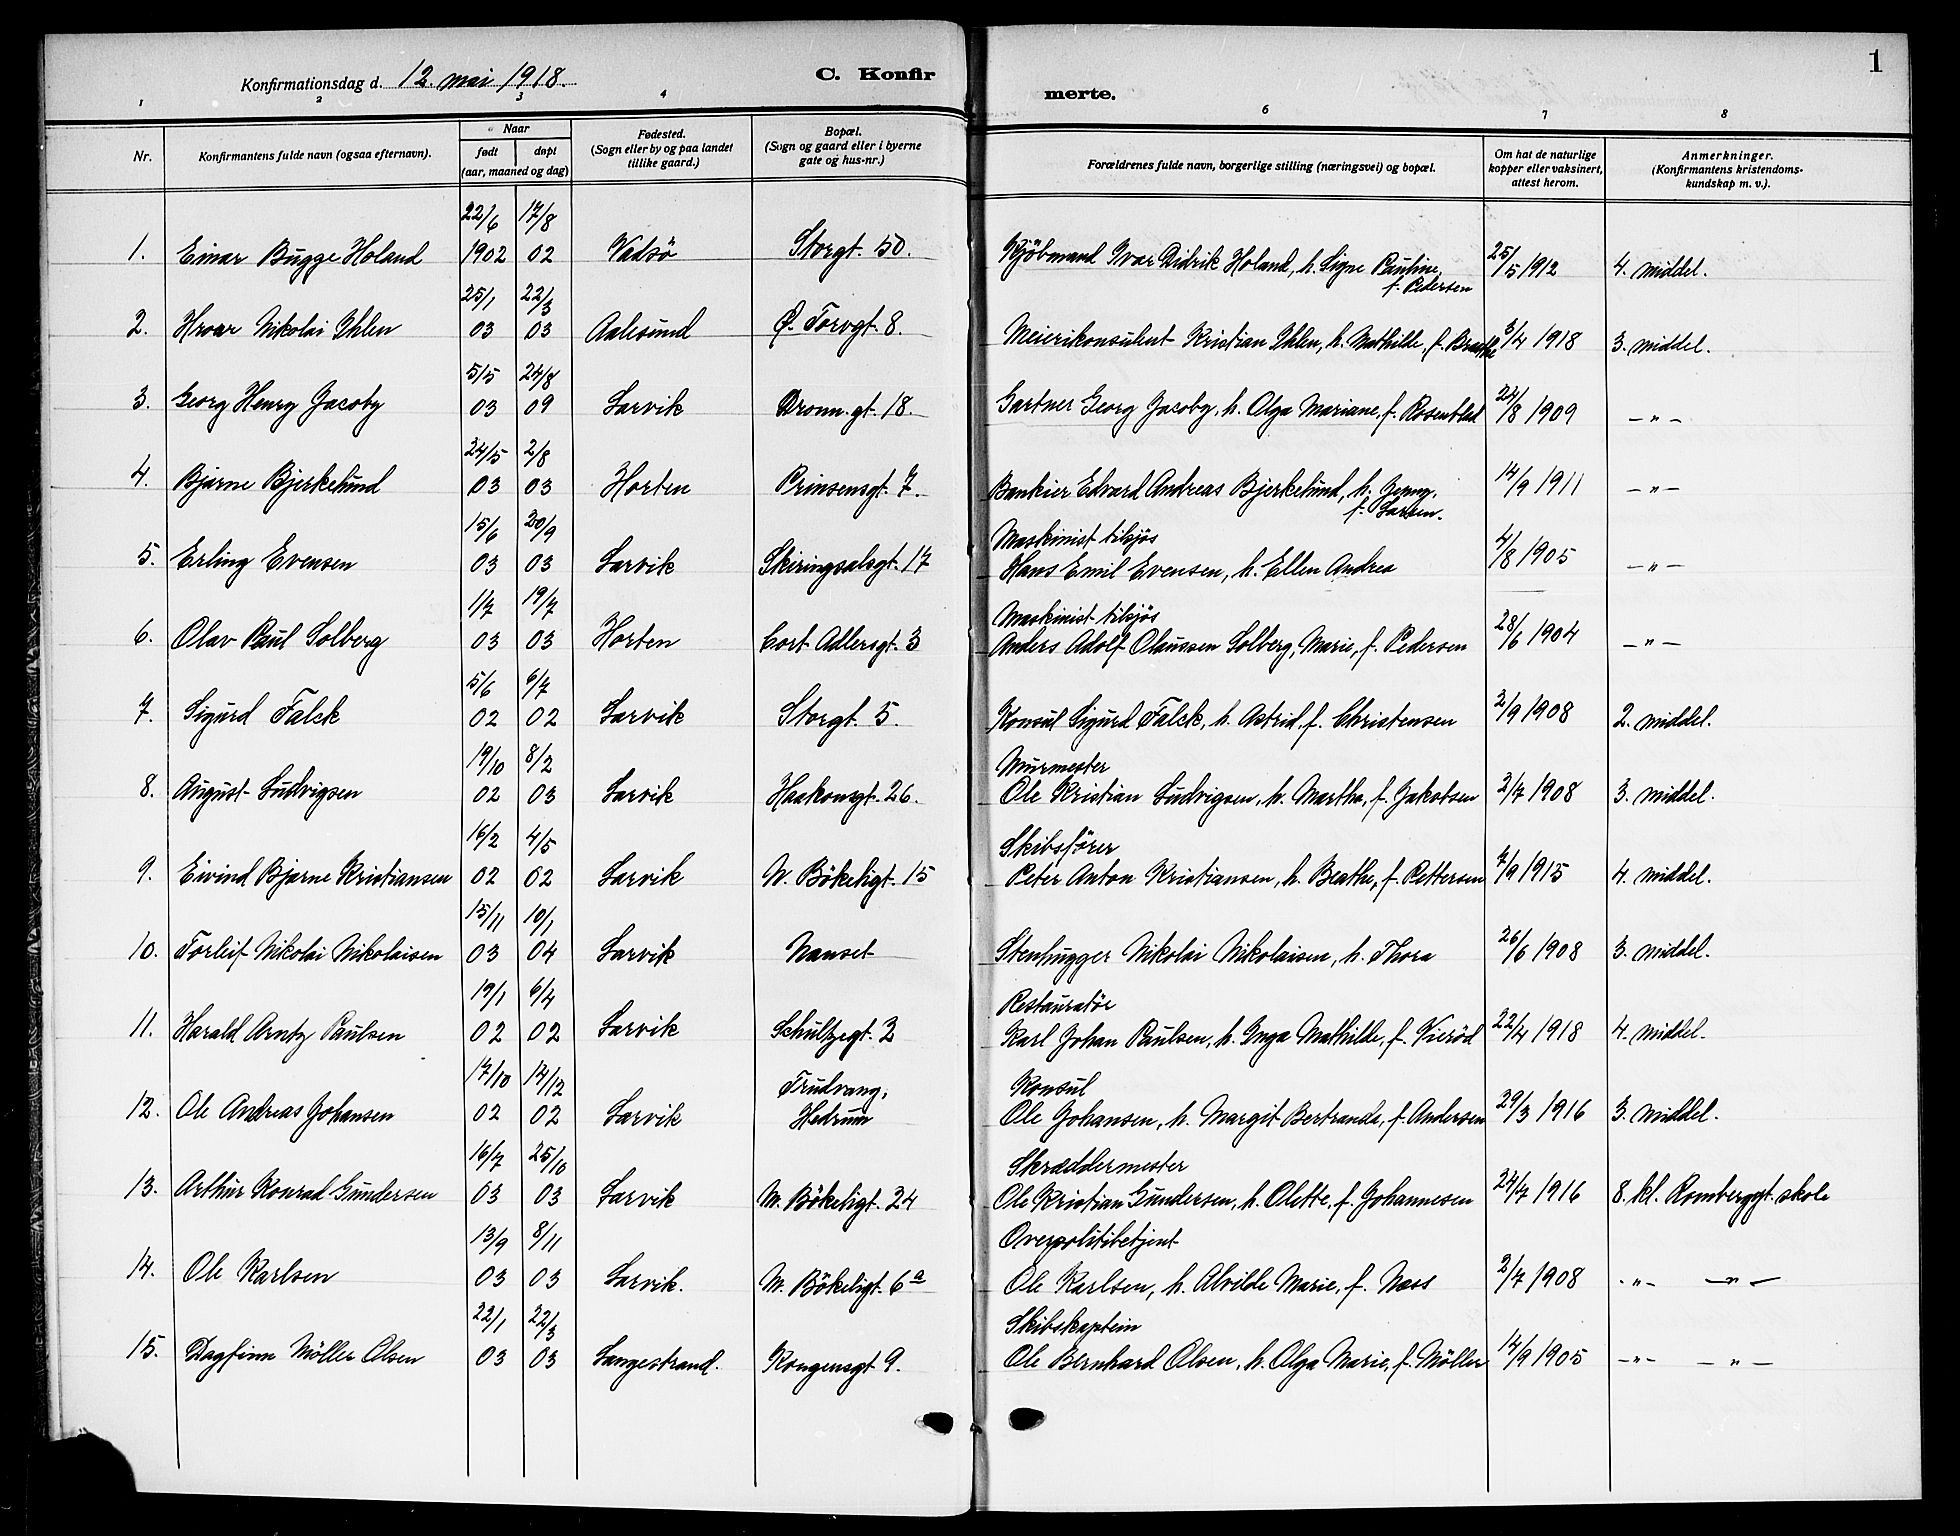 1
Konfirmationsdag d. 12. mai 1918.
C. Konfirmerte.
1 2 3 4 6 7 8
Nr.
Konfirmantens fulde navn (ogsaa efternavn).
Naar
født døpt
(aar, maaned og dag)
Fødested.
(Sogn eller by og paa landet
tillike gaard.)
Bopæl.
(Sogn og gaard eller i byerne
gate og hus-nr.)
Forældrenes fulde navn, borgerlige stilling (næringsvei) og bopæl.
Om hat de naturlige
kopper eller vaksinert,
attest herom.
Anmerkninger.
(Konfirmantens kristendoms-
kundskap m. v.).
22/6 17/8
1. Einar Bugge Holand 1902 02 Vadsö Storgt. 50. Kjöbmand Ivar Didrik Holand, h. Signe Pauline, 25/5 1912 4. middel.
f. Pedersen
25/1 22/3
2. Hroar Nikolai Ihlen 03 03 Aalesund Ø. Torvgt. 8. Meierikonsulent Kristian Ihlen, h. Mathilde, f. 3/4 1918 3. middel.
5/5 24/8
3. Georg Henry Jacoby 03 09 Larvik Dronn.gt. 18. Gartner Georg Jacoby, h. Olga Mariane, f. Rosenblad 24/8 1909 – " –
24/5 2/8
4. Bjarne Bjerkelund 03 03 Horten Prinsensgt. 7. Bankier Edvard Andreas Bjerkelund, h. Jenny, 14/9 1911 – " –
f. Larsen.
15/6 20/9 Maskinist tilsjøs
5. Erling Evensen 03 03 Larvik Skiringsalsgt. 17 Hans Emil Evensen, h. Ellen Andrea 4/8 1905 – " –
1/7 19/7 Maskinist tilsjøs
6. Olav Paul Solberg 03 03 Horten Cort Adlersgt. 3 Anders Adolf Olaussen Solberg, Marie, f. Pedersen 28/6 1904 – " –
5/6 6/7
7. Sigurd Falck 02 02 Larvik Storgt. 5. Konsul Sigurd Falck, h. Astrid, f. Christensen 2/9 1908 2. middel.
19/10 8/2 Murmester
8. August Ludvigsen 02 03 Larvik Haakonsgt. 26. Ole Kristian Ludvigsen, h. Martha, f. Jakobsen 2/7 1908 3. middel.
16/2 4/5 Skibsförer
9. Eivind Bjarne Kristiansen 02 02 Larvik N. Bökeligt. 15 Peter Anton Kristiansen, h. Beathe, f. Pettersen 7/9 1915 4. middel.
15/11 10/1
10. Torleif Nikolai Nikolaisen 03 04 Larvik Nanset Stenhugger Nikolai Nikolaisen, h. Thora 26/6 1908 3. middel.
19/1 6/4 Restauratör
11. Harald Arntz Paulsen 02 02 Larvik Schultzegt. 2 Karl Johan Paulsen, h. Inga Mathilde, f. Vieröd 22/4 1918 4. middel.
17/10 14/12 Trudvang, Konsul
12. Ole Andreas Johansen 02 02 Larvik Hedrum Ole Johansen, h. Margit Bertrande, f. Andersen 29/3 1916 3. middel.
16/7 25/10 Skræddermester
13. Arthur Konrad Gundersen 03 03 Larvik M. Bökeligt. 24 Ole Kristian Gundersen, h. Olette, f. Johannesen 24/7 1916 8. kl. Rombergsgt. skole
13/9 8/11 Overpolitibetjent
14. Ole Karlsen 03 03 Larvik. M. Bökeligt. 6a Ole Karlsen, h. Alvilde Marie, f. Næss 2/7 1908 – " – – " –
22/1 22/3 Skibskaptein
15. Dagfinn Möller Olsen 03 03 Langestrand. Kongensgt 9. Ole Bernhard Olsen, h. Olga Marie, f. Möller 14/9 1905 – " – – " –